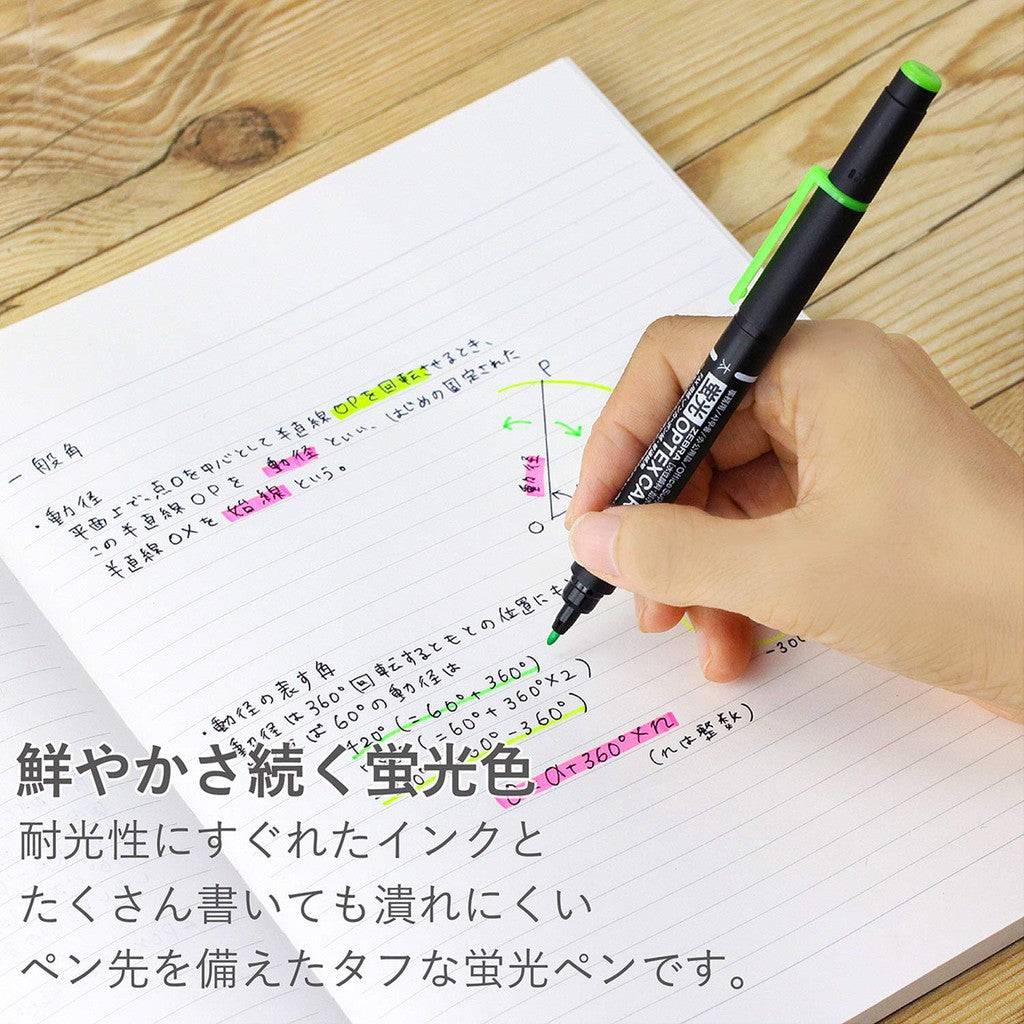 一般角
・動径
平面上で、点Oを中心として半直線OPを回転させるとき、
この半直線OPを動径といい、はじめの固定された
半直線OXを始線という。
P
動径
O
太
蛍光 ZEBRA OPTEX CAR
・動径の表す角
動径は360°回転するともとの位置にも
ば60°の動径は
420°(=60°+360°)
(=60°+360°×2)
0°-360°)
α+360°×n
(nは整数)
-300
鮮やかさ続く蛍光色
耐光性にすぐれたインクと
たくさん書いても潰れにくい
ペン先を備えたタフな蛍光ペンです。